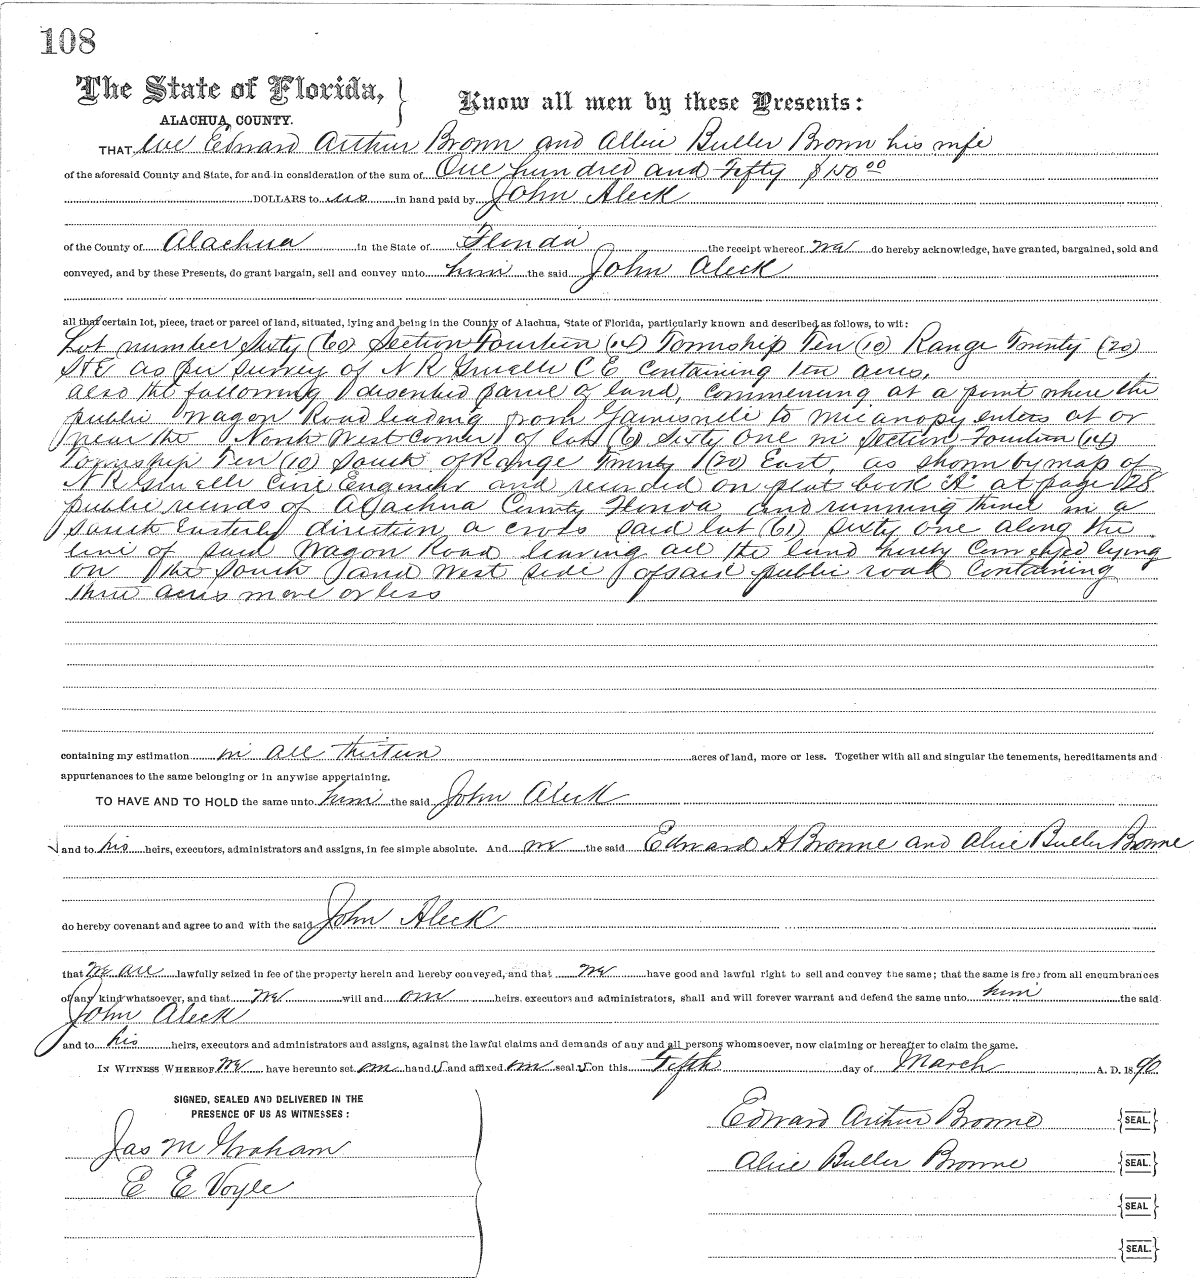 108
The State of Florida, } Know all men by these Presents:
ALACHUA COUNTY.
THAT We Edward Arthur Browne and Allice Butler Browne his wife
of the aforesaid County and State, for and in consideration of the sum of One hundred and Fifty $150 00
DOLLARS to us in hand paid by John Aleck
of the County of Alachua in the State of Florida the receipt whereof we do hereby acknowledge, have granted, bargained, sold and
conveyed, and by these Presents, do grant bargain, sell and convey unto him the said John Aleck
all that certain lot, piece, tract or parcel of land, situated, lying and being in the County of Alachua, State of Florida, particularly known and described as follows, to wit:
Lot number Sixty (60) Section Fourteen (14) Township Ten (10) Range Twenty (20)
S&E as per survey of N R Gruelle C E containing ten acres,
also the following described parcel of land, commencing at a point where the
public Wagon Road leading from Gainesville to Micanopy enters at or
near the North West Corner of lot (61) Sixty One in Section Fourteen (14)
Township Ten (10) South of Range Twenty (20) East, as shown by map of
N R Gruelle Civil Engineer and recorded on plat book "A" at page 128
public records of Alachua County Florida and running thence in a
South Easterly direction a cross said lot (61) Sixty one along the
line of said Wagon Road leaving all the land hereby Conveyed lying
on the South and West side of said public road containing
three acres more or less
containing my estimation in all thirteen acres of land, more or less. Together with all and singular the tenements, hereditaments and
appurtenances to the same belonging or in anywise appertaining.
TO HAVE AND TO HOLD the same unto him the said John Aleck
and to his heirs, executors, administrators and assigns, in fee simple absolute. And we the said Edward A Browne and Alice Butler Browne
do hereby covenant and agree to and with the said John Aleck
that we are lawfully seized in fee of the property herein and hereby conveyed, and that we have good and lawful right to sell and convey the same; that the same is free from all encumbrances
of any kind whatsoever, and that we will and our heirs. executors and administrators, shall and will forever warrant and defend the same unto him the said
John Aleck
and to his heirs, executors and administrators and assigns, against the lawful claims and demands of any and all persons whomsoever, now claiming or hereafter to claim the same.
IN WITNESS WHEREOF We have hereunto set our hand s and affixed our seal s on this Fifth day of March A. D. 1890
SIGNED, SEALED AND DELIVERED IN THE
PRESENCE OF US AS WITNESSES:
Jas M Graham
E E Voyle
Edward Arthur Browne {SEAL.}
Alice Butler Browne {SEAL.}
{SEAL}
{SEAL.}